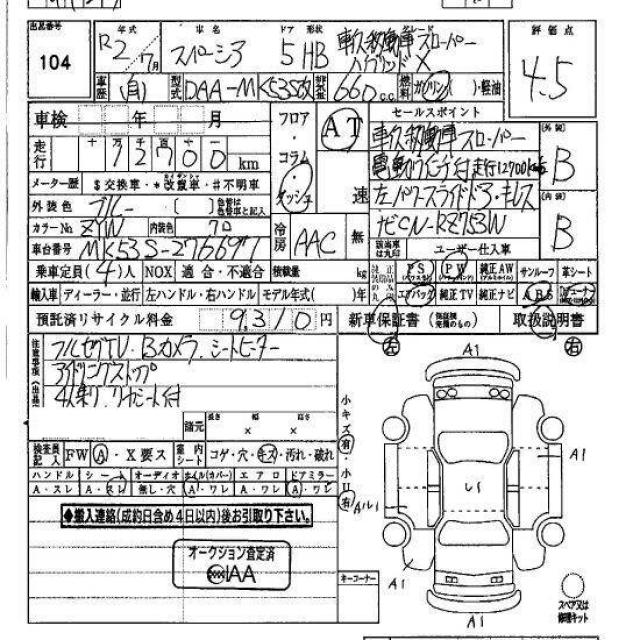 出品番号
104
年式 車名 ドア 形状
R2/7月 スペーシア 5 HB 車久移動車 スローパー
ハイブリッド X
評価点
4.5
車歴 自 型式 DAA-MK53S改 排気量 660cc 燃料 ガソリン( )・軽油
車検 年 月
走行 十 万 12700 km
メーター歴 $交換車・*改竄車・#不明車
外装色 ブルー ( ) 色替は色替車と記入
カラーNo. ZYW 内装色 70
車台番号 MK53S-276697
乗車定員(4)人 NOX 適合・不適合 積載量 kg
輸入車 ディーラー・並行 左ハンドル・右ハンドル モデル年式( )年
預託済リサイクル料金 9310円
フロア・コラム・ダッシュ
AT
速
冷房 AAC 無
セールスポイント
車久移動車 スローパー
走行12700km
左パワースライドドア・キーレス
ナビCN-RZ753W
ユーザー仕入車
PS PW 純正AW サンルーフ 革シート
エアバック 純正TV 純正ナビ ABS
新車保証書(保証継発期のもの) 取扱説明書
外装
B
内装
B
注意事項(出品
フルセグTV.Bカメラ.シートヒーター
アイドリングストップ
4人乗り.リヤシート付
諸元 長さ 幅 高さ
× ×
検査員記入 FW A・X要ス 室内シート コゲ・穴・キズ・汚れ・破れ
ハンドル シート オーディオ ホイル(カバー) エアロ ドアミラー
A・スレ A・スレ 無し・穴 A・ワレ A・ワレ A・ワレ
◆搬入連絡(成約日含め4日以内)後お引取り下さい。
オークション査定済
IAA
小キズ有・小凹有
キーコーナー
左 右
A1
A1
Aル1
レ1
A1
A1
スペア又は修理キット